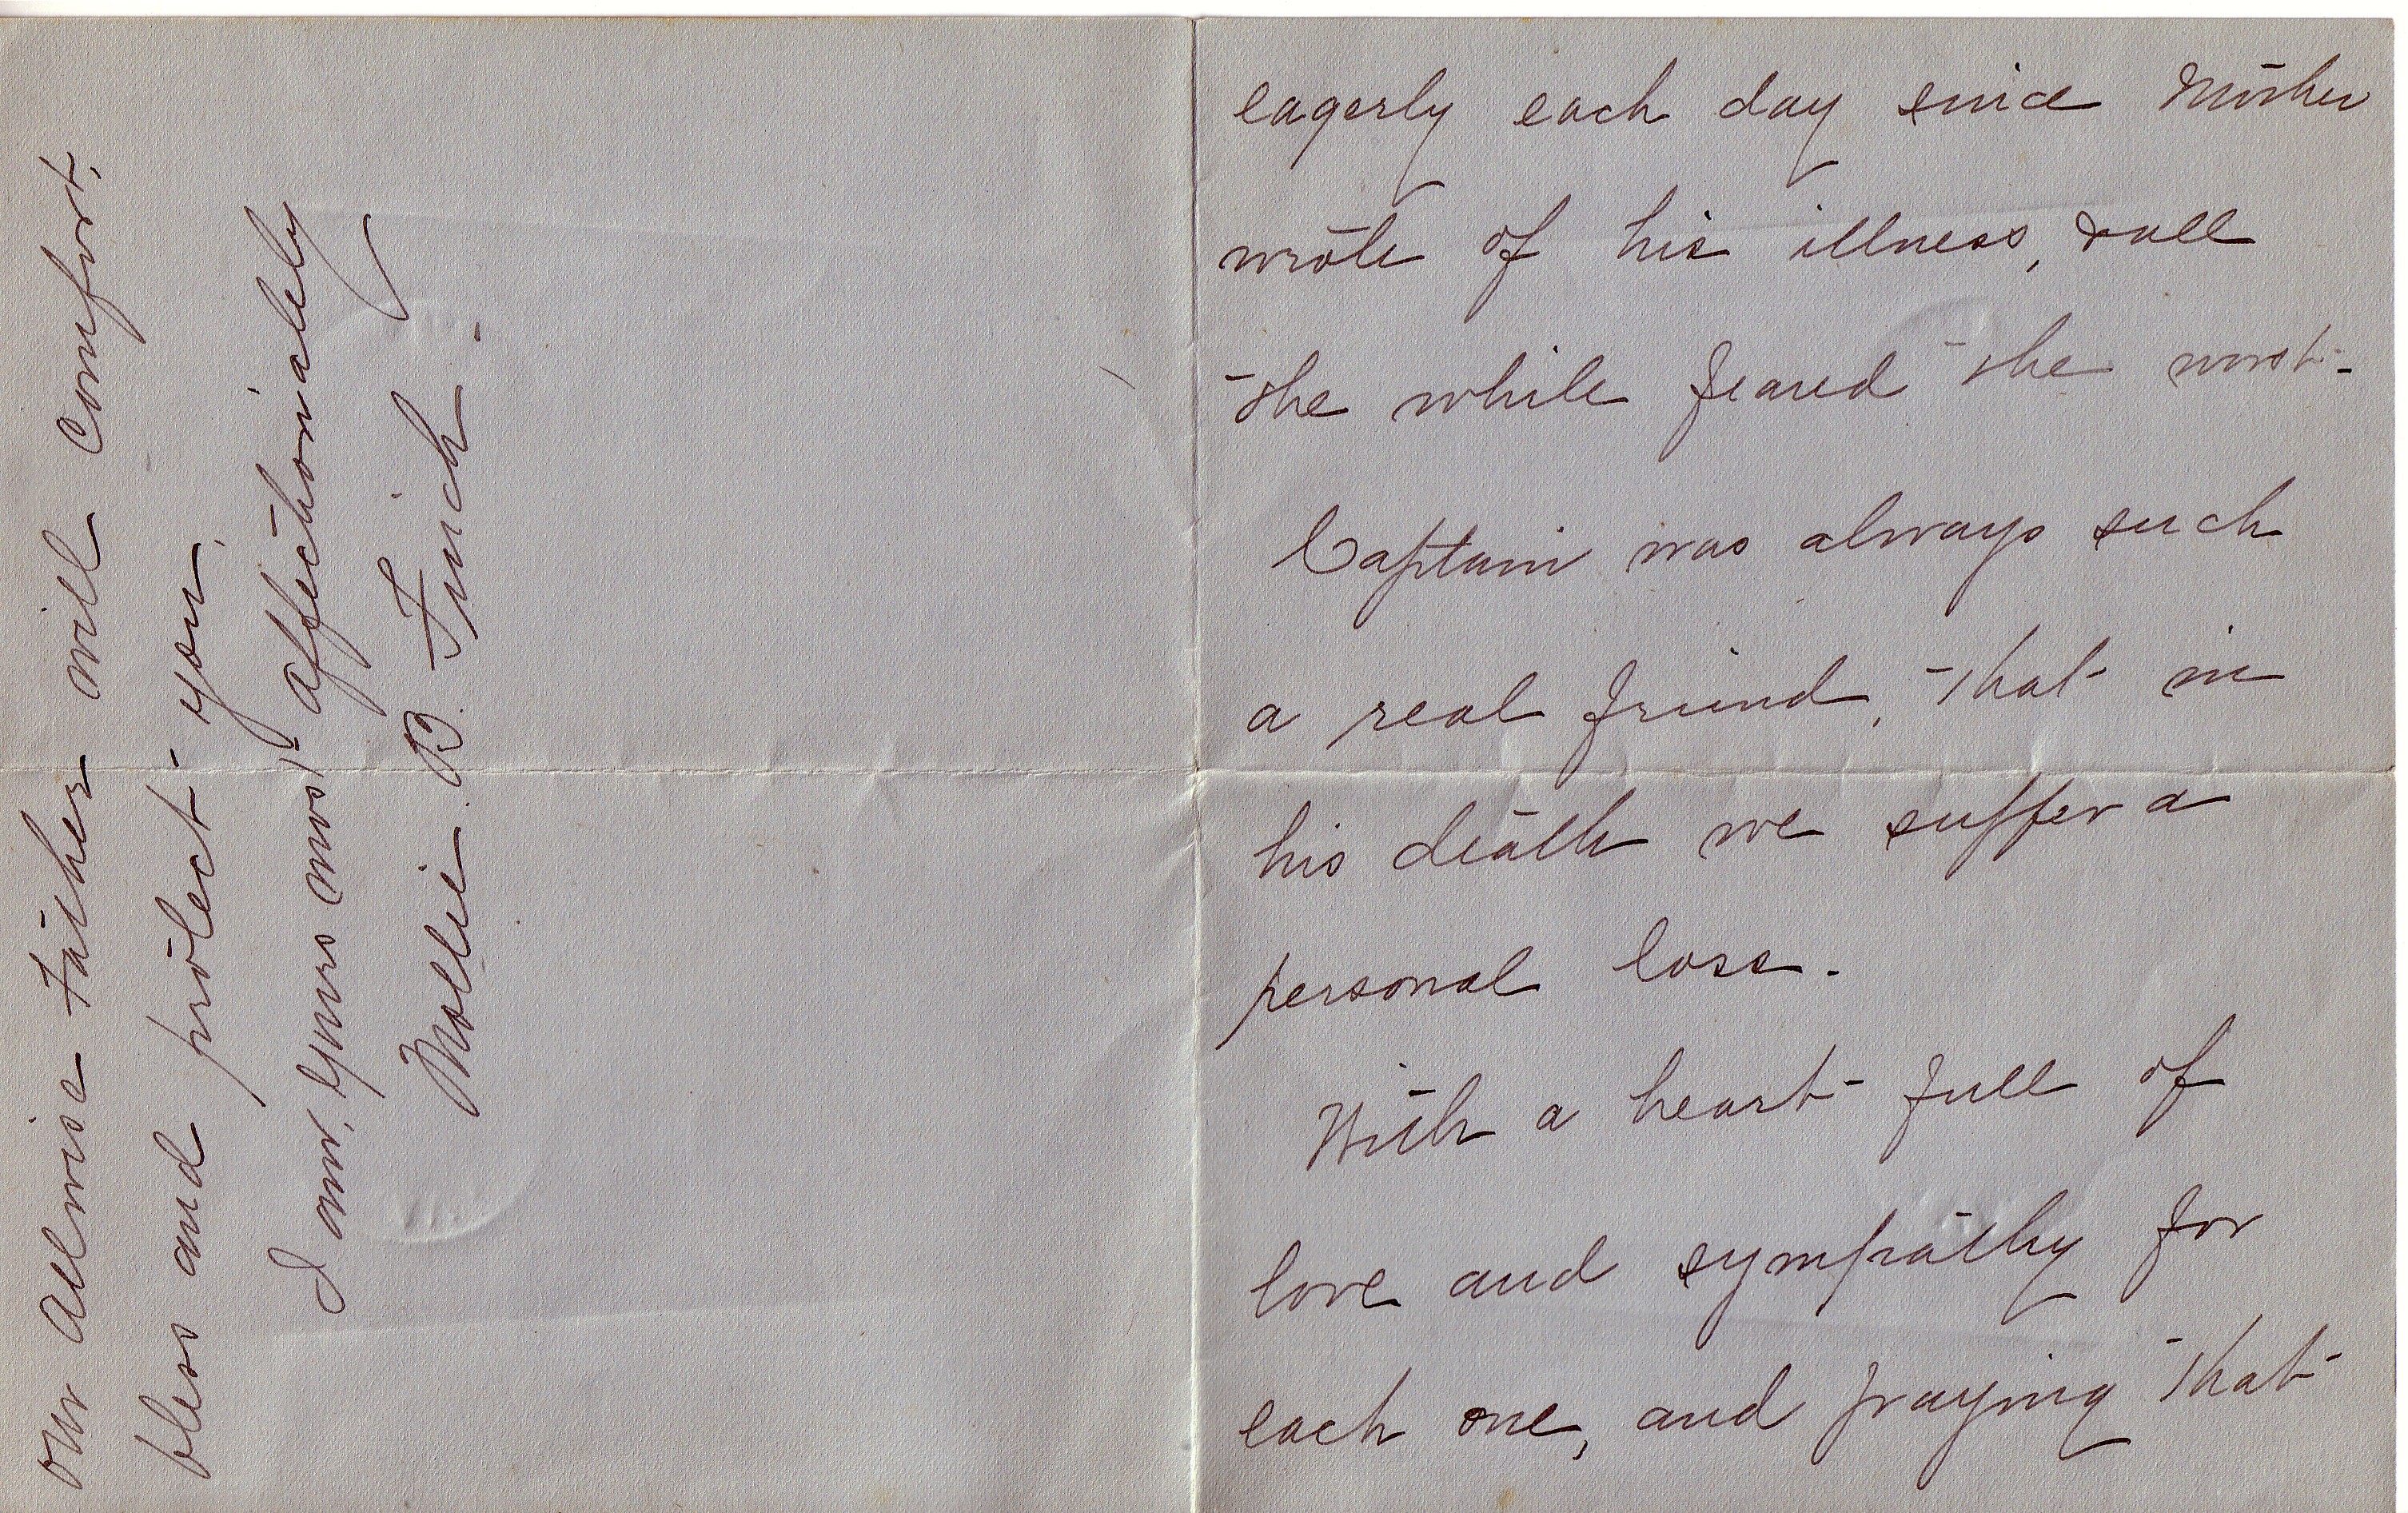 eagerly each day since Mother
wrote of his illness, & all
the while feared the worst-
Captain was always such
a real friend, that in
his death we suffer a
personal loss.
With a heart full of
love and sympathy for
each one, and praying that
our Allwise Father will comfort,
bless and protect you,
I am, Yours most affectionately
Mollie B. Finch-